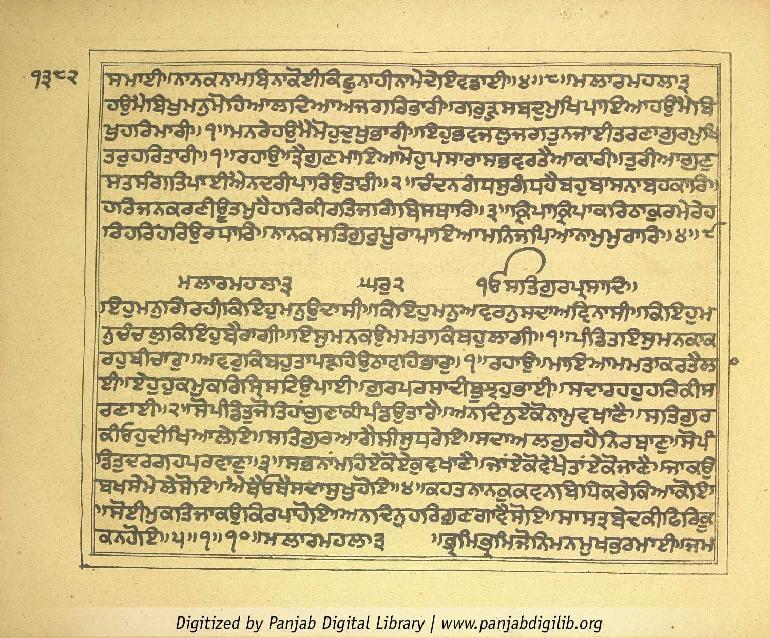 ੧੩੮੨
ਸਮਾਈ॥ਨਾਨਕਨਾਮਬਿਨਾਕੋਈਕਿਛੁਨਾਹੀਨਾਮੇਦੇਇਵਡਾਈ॥੪॥੮॥ਮਲਾਰਮਹਲਾ੩
ਹਉਮੈਬਿਖੁਮਨੁਮੋਹਿਆਲਾਦਿਆਅਜਗਰਿਭਾਰੀ॥ਗਰੁੜੁਸਬਦੁਮੁਖਿਪਾਇਆਹਉਮੈਬਿ
ਖੁਹਰਿਮਾਰੀ॥੧॥ਮਨਰੇਹਉਮੈਮੋਹੁਦੁਖੁਭਾਰੀ॥ਇਹੁਭਵਜਲੁਜਗਤੁਨਜਾਈਤਰਣਾਗੁਰਮੁਖਿ
ਤਰੁਹਰਿਤਾਰੀ॥੧॥ਰਹਾਉ॥ਤ੍ਰੈਗੁਣਮਾਇਆਮੋਹੁਪਸਾਰਾਸਭਵਰਤੈਆਕਾਰੀ॥ਤੁਰੀਆਗੁਣੁ
ਸਤਸੰਗਤਿਪਾਈਐਨਦਰੀਪਾਰਿਉਤਾਰੀ॥੨॥ਚੰਦਨਗੰਧਸੁਗੰਧਹੈਬਹੁਬਾਸਨਾਬਹਕਾਰਿ॥
ਹਰਿਜਨਕਰਣੀਊਤਮਹੈਹਰਿਕੀਰਤਿਜਗਿਬਿਸਥਾਰਿ॥੩॥ਕ੍ਰਿਪਾਕ੍ਰਿਪਾਕਰਿਠਾਕੁਰਮੇਰੇਹ
ਰਿਹਰਿਹਰਿਉਰਧਾਰਿ॥ਨਾਨਕਸਤਿਗੁਰੁਪੂਰਾਪਾਇਆਮਨਿਜਪਿਆਨਾਮੁਮੁਰਾਰਿ॥੪॥੯
ਮਲਾਰਮਹਲਾ੩ ਘਰੁ੨ ੴਸਤਿਗੁਰਪ੍ਰਸਾਦਿ॥
ਇਹੁਮਨੁਗਿਰਹੀਕਿਇਹੁਮਨੁਉਦਾਸੀ॥ਕਿਇਹੁਮਨੁਅਵਰਨੁਸਦਾਅਵਿਨਾਸੀ॥ਕਿਇਹੁਮ
ਨੁਚੰਚਲਾਕਿਇਹੁਬੈਰਾਗੀ॥ਇਸੁਮਨਕਉਮਮਤਾਕਿਥਹੁਲਾਗੀ॥੧॥ਪੰਡਿਤਇਸੁਮਨਕਾਕ
ਰਹੁਬੀਚਾਰੁ॥ਅਵਰੁਕਿਬਹੁਤਾਪੜਹਿਉਠਾਵਹਿਭਾਰੁ॥੧॥ਰਹਾਉ॥ਮਾਇਆਮਮਤਾਕਰਤੈਲ
ਈ॥ਏਹੁਹੁਕਮੁਕਰਿਸ੍ਰਿਸਟਿਉਪਾਈ॥ਗੁਰਪਰਸਾਦੀਬੂਝਹੁਭਾਈ॥ਸਦਾਰਹਹੁਹਰਿਕੀਸ
ਰਣਾਈ॥੨॥ਸੋਪੰਡਿਤੁਜੋਤਿਹਾਗੁਣਾਕੀਪੰਡਉਤਾਰੈ॥ਅਨਦਿਨੁਏਕੋਨਾਮੁਵਖਾਣੈ॥ਸਤਿਗੁਰ
ਕੀਓਹੁਦੀਖਿਆਲੇਇ॥ਸਤਿਗੁਰਆਗੈਸੀਸੁਧਰੇਇ॥ਸਦਾਅਲਗੁਰਹੈਨਿਰਬਾਣੁ॥ਸੋਪੰ
ਡਿਤੁਦਰਗਹਪਰਵਾਣੁ॥੩॥ਸਭਨਾਮਹਿਏਕੋਏਕੁਵਖਾਣੈ॥ਜਾਂਏਕੋਵੇਖੈਤਾਂਏਕੋਜਾਣੈ॥ਜਾਕਉ
ਬਖਸੇਮੇਲੇਸੋਇ॥ਐਥੈਓਥੈਸਦਾਸੁਖੁਹੋਇ॥੪॥ਕਹਤਨਾਨਕੁਕਵਨਬਿਧਿਕਰੇਕਿਆਕੋਇ
॥ਸੋਈਮੁਕਤਿਜਾਕਉਕਿਰਪਾਹੋਇ॥ਅਨਦਿਨੁਹਰਿਗੁਣਗਾਵੈਸੋਇ॥ਸਾਸਤ੍ਰਬੇਦਕੀਫਿਰਿਕੂ
ਕਨਹੋਇ॥੫॥੧॥੧੦॥ਮਲਾਰਮਹਲਾ੩ ॥ਭ੍ਰਮਿਭ੍ਰਮਿਜੋਨਿਮਨਮੁਖਭਰਮਾਈ॥ਜਮ
Digitized by Panjab Digital Library | www.panjabdigilib.org